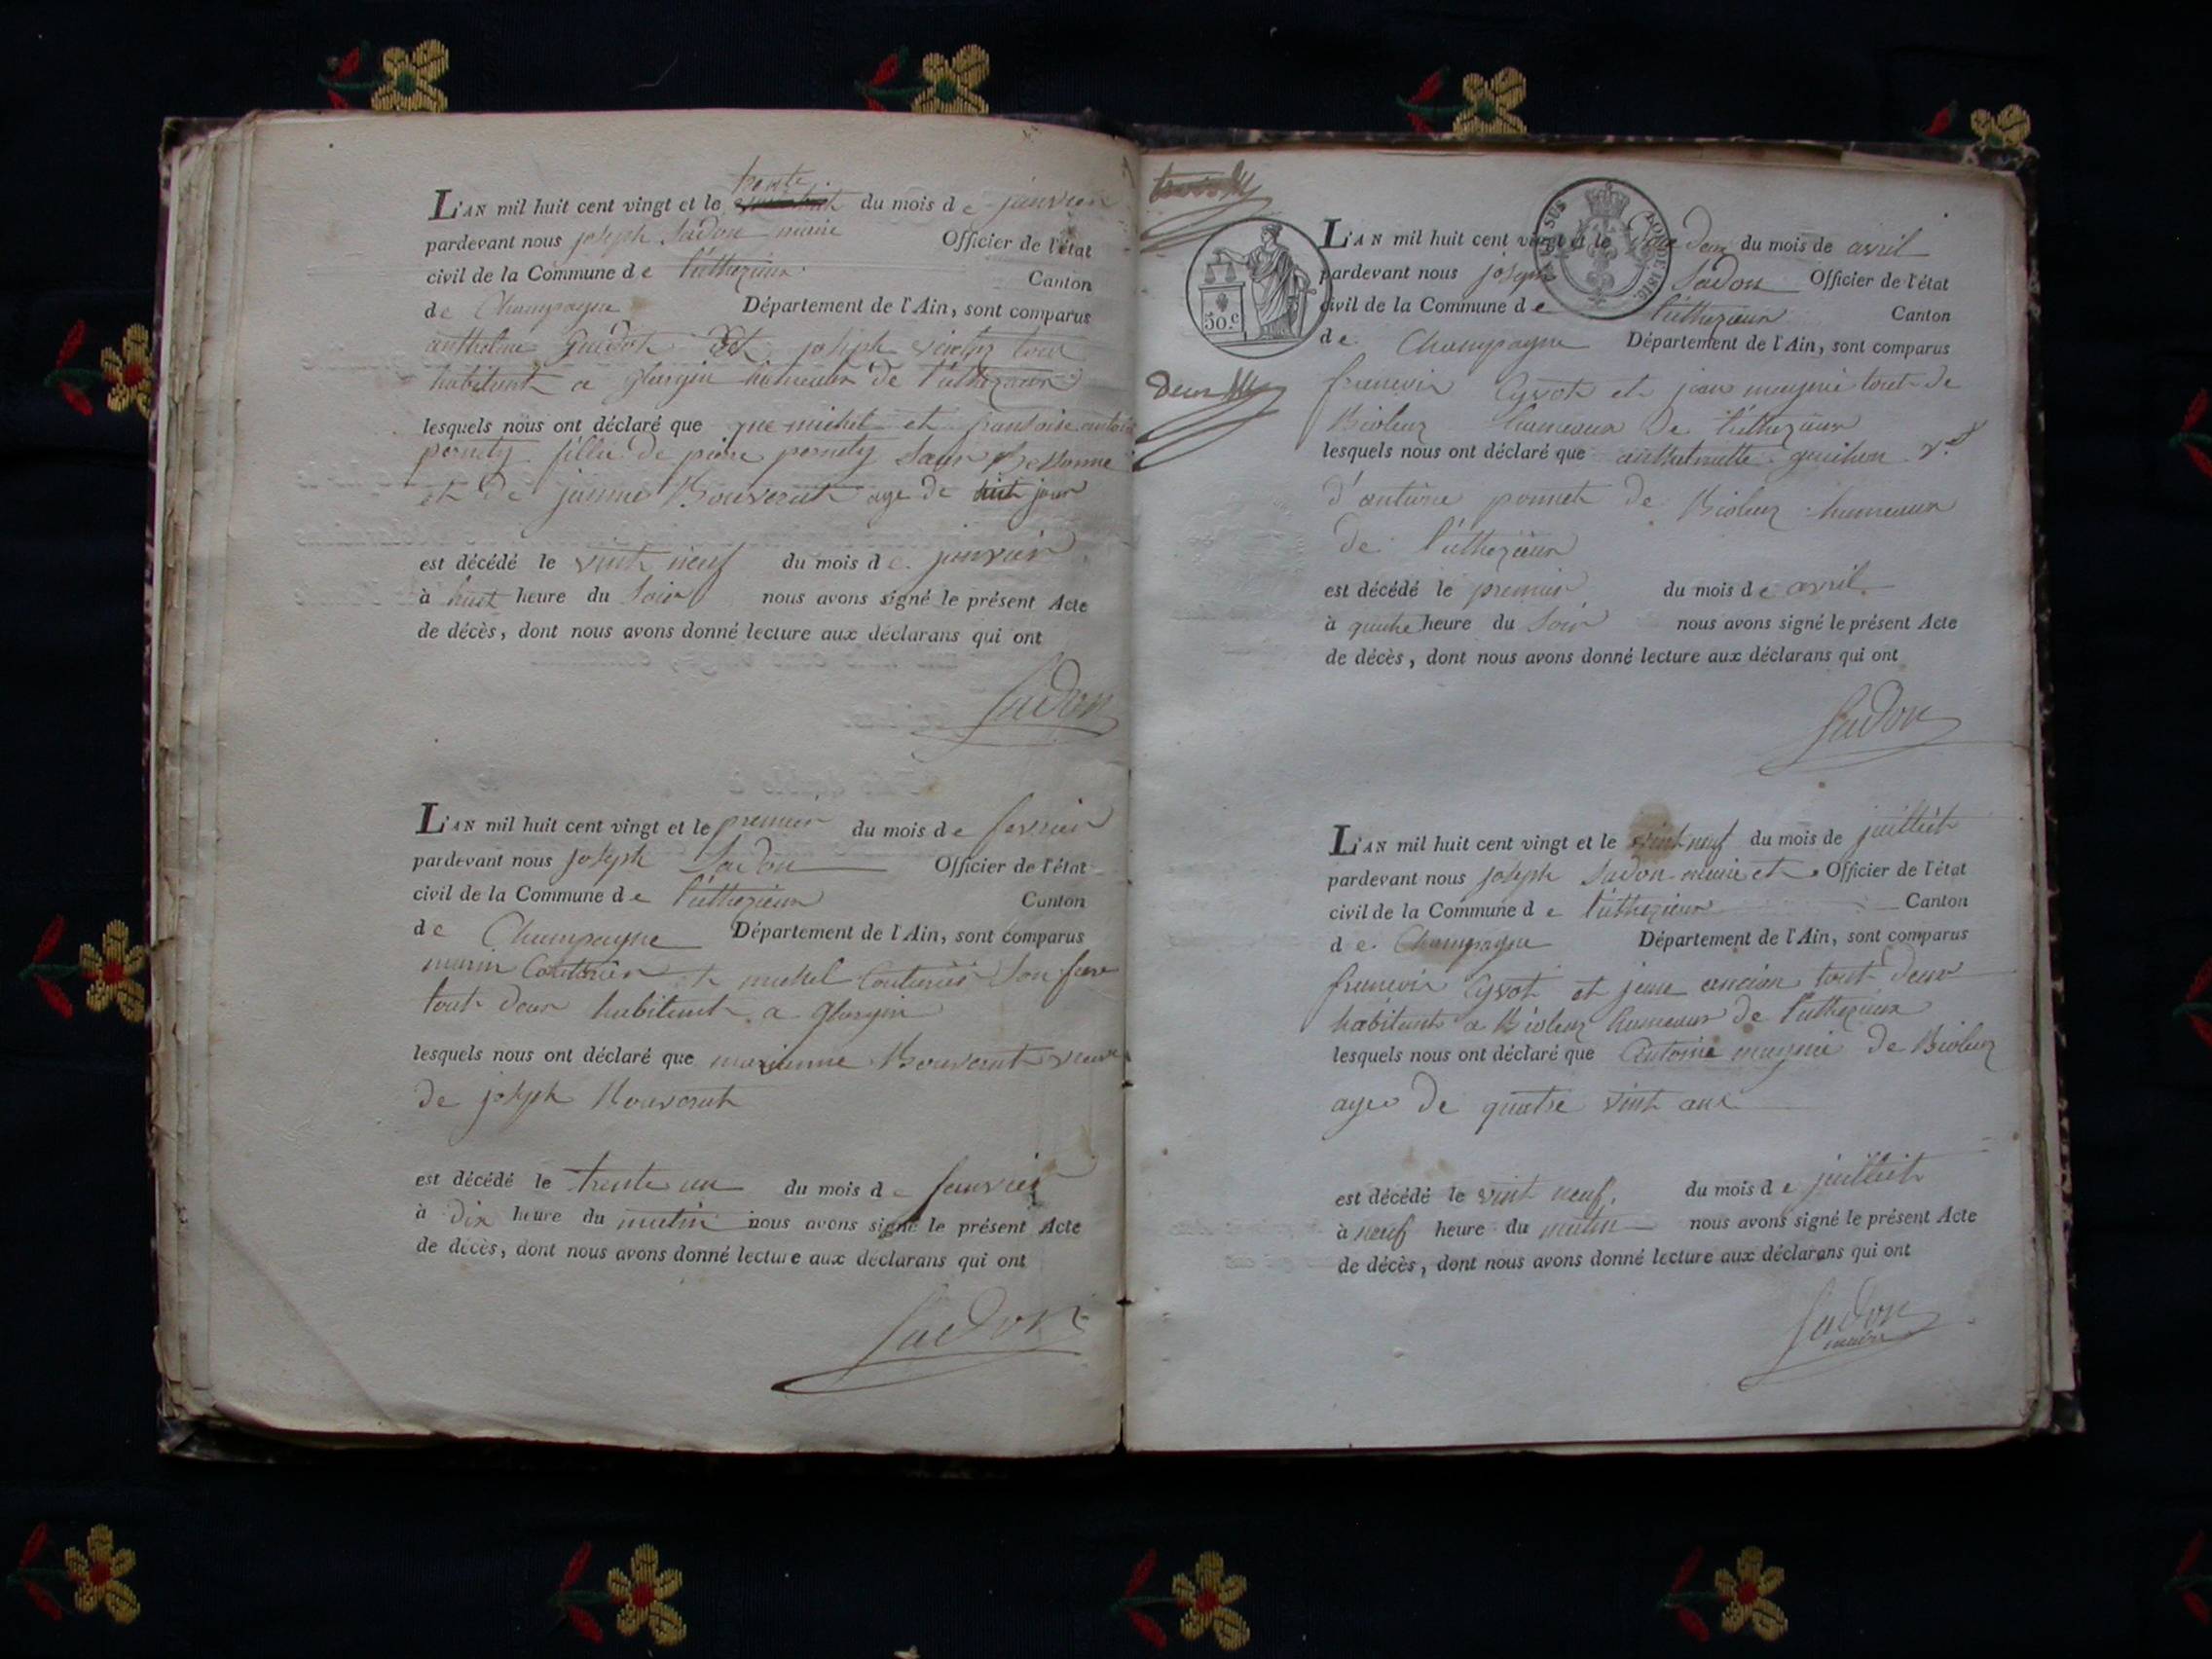 trente
L'AN mil huit cent vingt et le du mois de janvier
pardevant nous joseph Sadon maire Officier de l'état
civil de la Commune de Luthezieux Canton
de Champagne Département de l'Ain, sont comparus
anthelme Guidot et joseph tout
habitant a hameaux de Luthezieux
lesquels nous ont déclaré que que michel et
fille de piere
et de jeanne Bouverat age de huit jour
est décédé le vint neuf du mois de janvier
à huit heure du Soir nous avons signé le présent Acte
de décès, dont nous avons donné lecture aux déclarans qui ont
Sadon
L'AN mil huit cent vingt et le premier du mois de fevrier
pardevant nous joseph Sadon Officier de l'état
civil de la Commune de Luthezieux Canton
de Champagne Département de l'Ain, sont comparus
marin Couturier et michel Couturier Son frere
tout deux habitant a
lesquels nous ont déclaré que marianne Bouverat veuve
de joseph Bouverat
est décédé le trente un du mois de janvier
à dix heure du matin nous avons signé le présent Acte
de décès, dont nous avons donné lecture aux déclarans qui ont
Sadon
50.c
SUS
DE 1816.
deux
L'AN mil huit cent vingt et le deux du mois de avril
pardevant nous joseph Sadon Officier de l'état
civil de la Commune de Luthezieux Canton
de Champagne Département de l'Ain, sont comparus
francois Cyvot et jean magnié tout de
Bioleaz hameaux de Luthezieux
lesquels nous ont déclaré que anthelmette
d'antoine ponnet de Bioleaz hameaux
de Luthezieux
est décédé le premier du mois de avril
à quatre heure du Soir nous avons signé le présent Acte
de décès, dont nous avons donné lecture aux déclarans qui ont
Sadon
L'AN mil huit cent vingt et le vint neuf du mois de juilliet
pardevant nous joseph Sadon maire et Officier de l'état
civil de la Commune de Luthezieux Canton
de Champagne Département de l'Ain, sont comparus
francois Cyvot et jean ancian tout deux
habitant a Bioleaz hameaux de Luthezieux
lesquels nous ont déclaré que Antoine magnié de Bioleaz
ages de quatre vint ans
est décédé le vint neuf du mois de juilliet
à neuf heure du matin nous avons signé le présent Acte
de décès, dont nous avons donné lecture aux déclarans qui ont
Sadon
maire